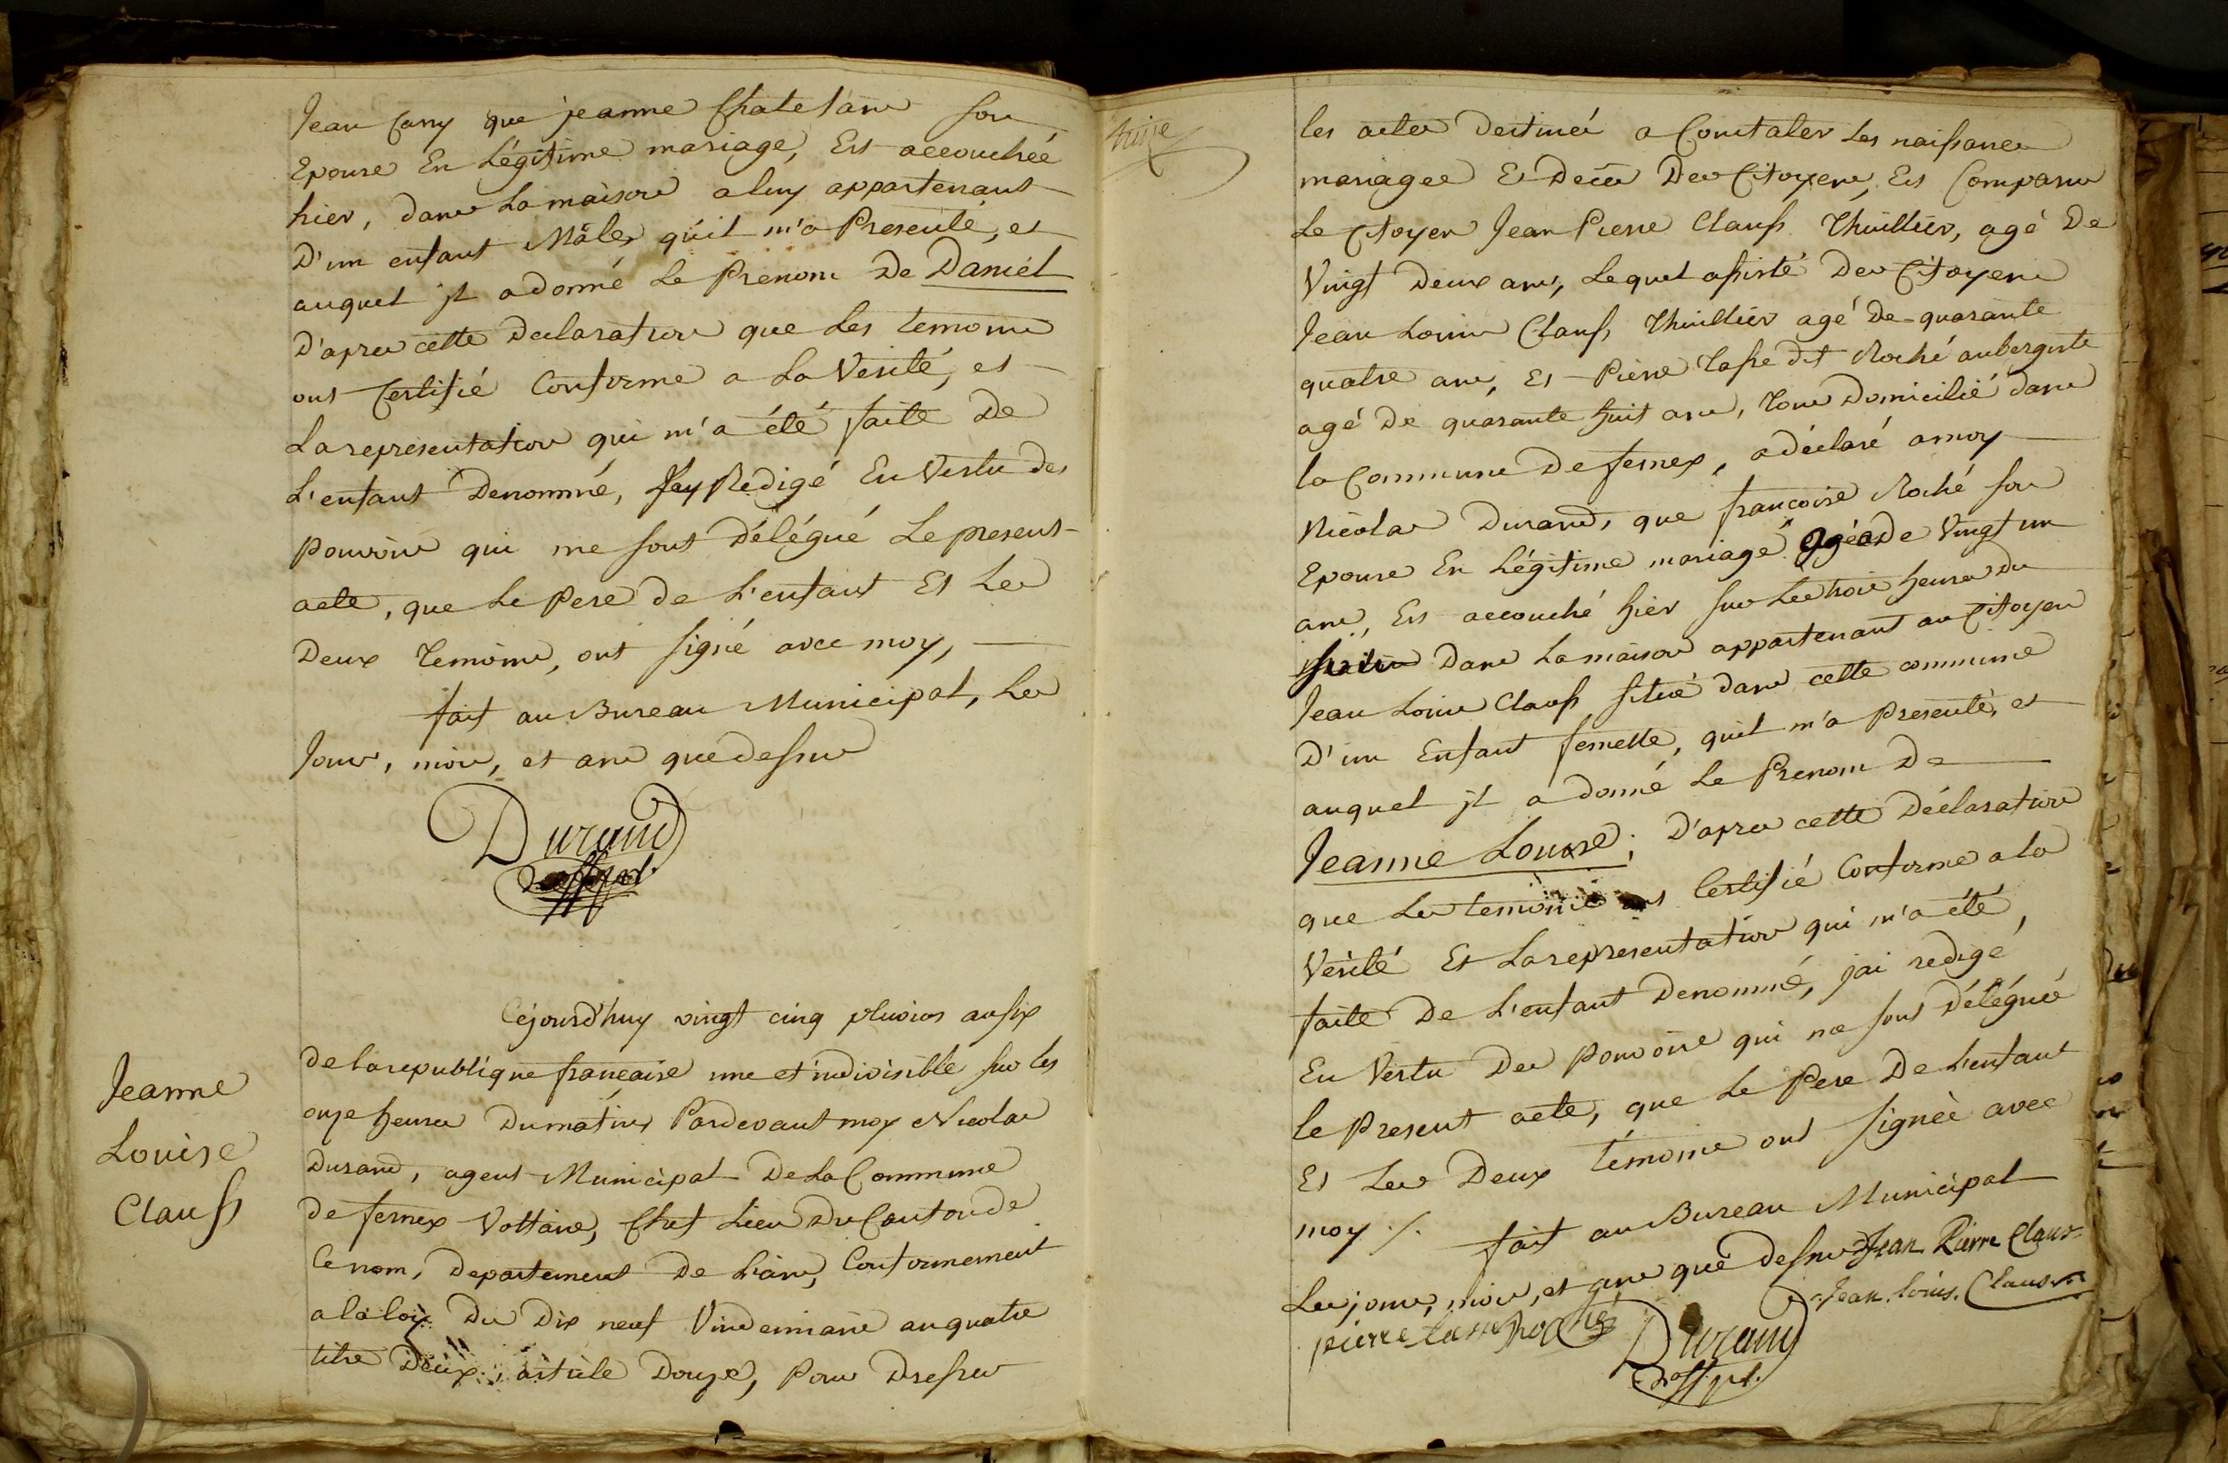 Jean Cany que jeanne Chatelans son
Epouse En Légitime mariage, Est accouchéé
hier, dans La maison a luy appartenant
D'un enfant Mâle, qu'il m'a Presenté, et
auquel jl a donné Le Prenom De Daniél
D'apres cette Declaration que Les temoins
ont Certifié Conforme a La Verité, et
La representation qui m'a été faite De
L'enfant Denommé, Jay Rédigé En Vertu des
pouvoirs qui me sont Délégué Le present
acte, que Le Pere de L'enfant Et Les
Deux Temoins, ont signé avec moy,
fait au Bureau Municipal, Les
Jour, mois, et ans que dessus
Durand
Jeanne
Louise
Clauss
Cejourd'huy vingt cinq pluvios an six
de la republique francaise une et indivisible sur les
onze heures Du matin, Pardevant moy Nicolas
Durand, agent Municipal De La Commune
De fernex Voltaire, Chef Lieu Du Canton de
Ce nom, Departement De L'ain, Conformement
a la loix Du Dix neuf Vindemiaire an quatre
titre Deux, article Douze, Pour Dresser
onze
les actes Destinéé a Constater Les naissances
mariages Et Décès Des Citoyens, Est Comparus
Le Citoyen Jean Pierre Clauss Thuillier, agé De
Vingt Deux ans, Lequel assisté Des Citoyens
Jean Louis Clauss, Thuillier agé De quarante
quatre ans, Et Pierre Tasse dit Roché aubergiste
agé De quarante huit ans, Tous Domicilié dans
la Commune De fernex, a déclaré a moy
Nicolas Durand, que francoise Roché son
Epouse En Légitime mariage Agée De Vingt un
ans, Est accouché hier sur Les trois heures Du
matin Dans La maison appartenant au Citoyen
Jean Louis Clauss situé dans cette commune
D'un Enfant femelle, quil m'a Presenté, et
auquel jl a donné Le Prenom De
Jeanne Louise; D'apres cette Déclaration
que Les temoins ont Certifié Conforme a la
Vérité Et La representation qui m'a été,
faite De L'enfant Denommé, jai redigé
En Vertu Des Pouvoirs qui me sont Délégué
le Present acte, que Le Pere De L'enfant
Et Les Deux témoins ont signéé avec
moy ./.
fait au Bureau Municipal
Les jour, mois, et ans que Dessus Jean Pierre Claus
Jean Louis Claus
pierre tasse Roché
Durand